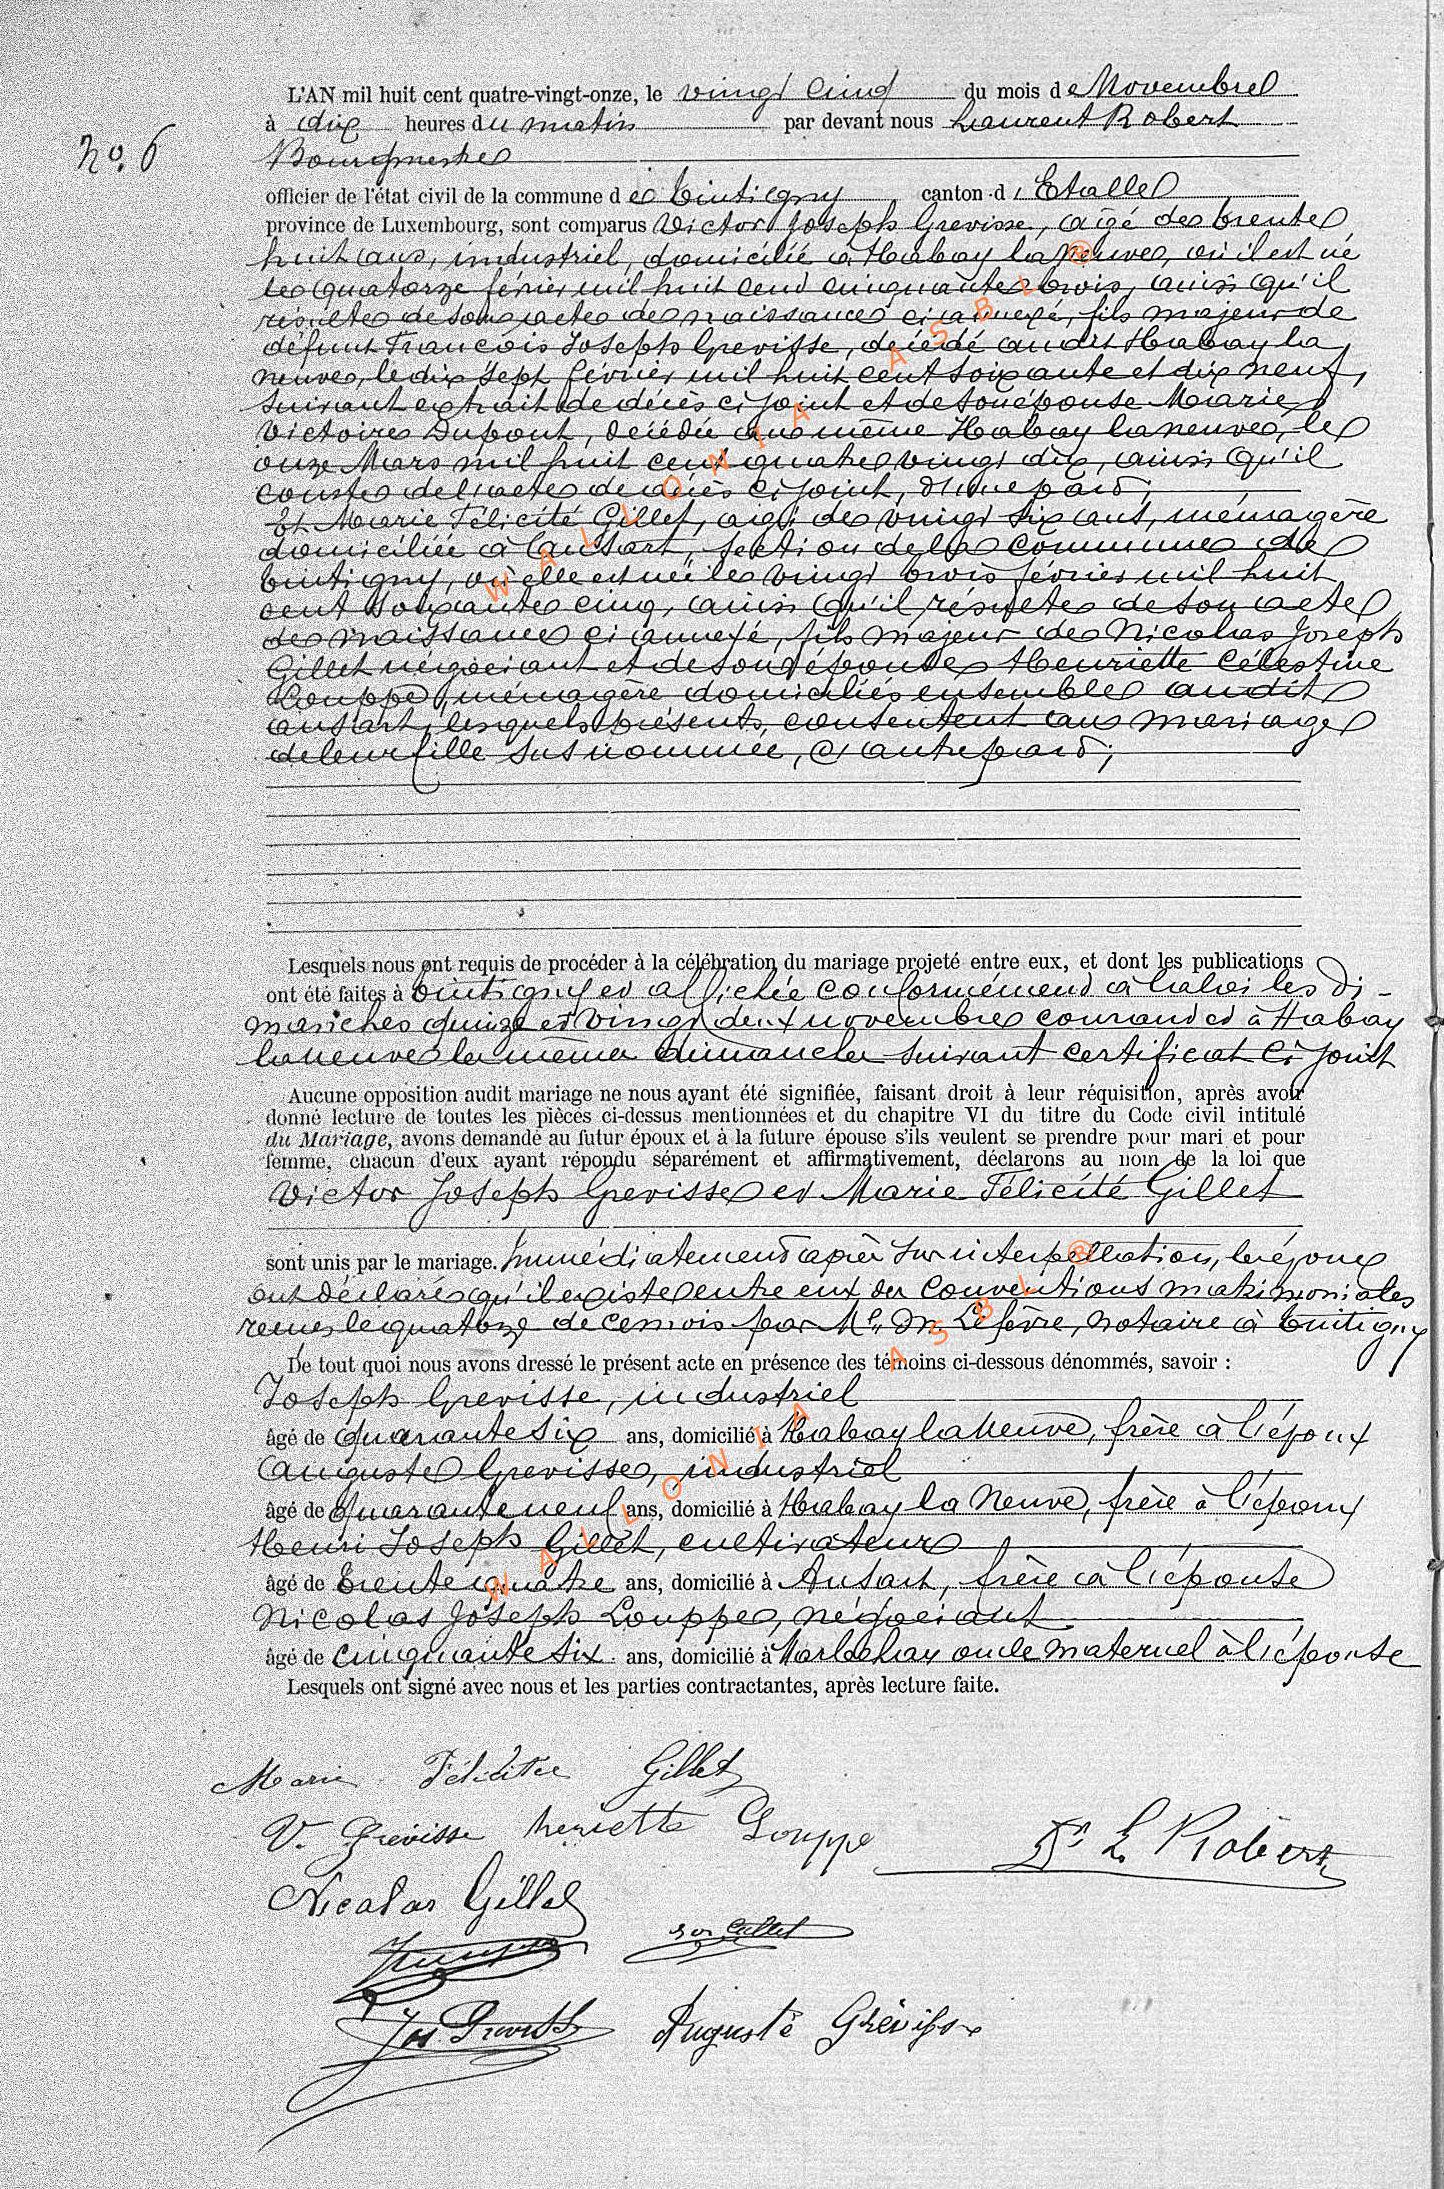 L'AN mil huit cent quatre-vingt-onze, le vingt cinq du mois de Novembre
à dix heures du matin par devant nous Laurent Robert
No. 6
Bourgmestre
officier de l'état civil de la commune de Tintigny canton d'Etalle
province de Luxembourg, sont comparus Victor Joseph Grevisse, âgé de trente
huit ans, industriel, domicilié à Habay la neuve, où il est né
le quatorze février mil huit cent cinquante trois, ainsi qu'il
résulte de son acte de naissance ci annexé, fils majeur de
défunt François Joseph Grevisse, décédé audit Habay la
neuve, le dix sept février mil huit cent soixante et dix neuf,
suivant extrait de décès ci joint et de son épouse Marie
Victoire Dupont, décédée au même Habay la neuve, le
onze Mars mil huit cent quatre vingt dix, ainsi qu'il
conste de l'acte de décès ci joint, d'une part;
Et Marie Félicité Gillet, âgée de vingt six ans, ménagère
domiciliée à Ansart, section de la commune de
Tintigny, où elle est née le vingt trois février mil huit
cent soixante cinq, ainsi qu'il résulte de son acte
de naissance ci annexé, fils majeur de Nicolas Joseph
Gillet négociant et de son épouse Henriette Célestine
Louppe, ménagère domiciliés ensemble audit
ansart, lesquels présents, consentent au mariage
de leur fille sus nommée, d'autre part;
Lesquels nous ont requis de procéder à la célébration du mariage projeté entre eux, et dont les publications
ont été faites à Tintigny et affichée conformément à la loi les di-
manches quinze et vingt deux novembre courant et à Habay
la neuve les mêmes dimanches suivant certificat ci joint
Aucune opposition audit mariage ne nous ayant été signifiée, faisant droit à leur réquisition, après avoir
donné lecture de toutes les pièces ci-dessus mentionnées et du chapitre VI du titre du Code civil intitulé
du Mariage, avons demandé au futur époux et à la future épouse s'ils veulent se prendre pour mari et pour
femme, chacun d'eux ayant répondu séparément et affirmativement, déclarons au nom de la loi que
Victor Joseph Grevisse et Marie Félicité Gillet
sont unis par le mariage. Immédiatement après sur interpellation, les époux
ont déclaré qu'il existe entre eux des conventions matrimoniales
reçues le quatorze de ce mois par Me Lefèvre, notaire à Tintigny
De tout quoi nous avons dressé le présent acte en présence des témoins ci-dessous dénommés, savoir :
Joseph Grevisse, industriel
âgé de quarante six ans, domicilié à Habay la Neuve, frère à l'époux
Auguste Grevisse, industriel
âgé de quarante neuf ans, domicilié à Habay la Neuve, frère à l'époux
Henri Joseph Gillet, cultivateur
âgé de trente quatre ans, domicilié à Ansart, frère à l'épouse
Nicolas Joseph Louppe, négociant
âgé de cinquante six ans, domicilié à Marbehay oncle maternel à l'épouse
Lesquels ont signé avec nous et les parties contractantes, après lecture faite.
Marie Félicitée Gillet
V. Grévisse Henriette Louppe Dr L Robert
Nicolas Gillet
Gillet
Jos Grevisse Auguste Grévisse
WALLONIA ASBL ®
WALLONIA ASBL ®